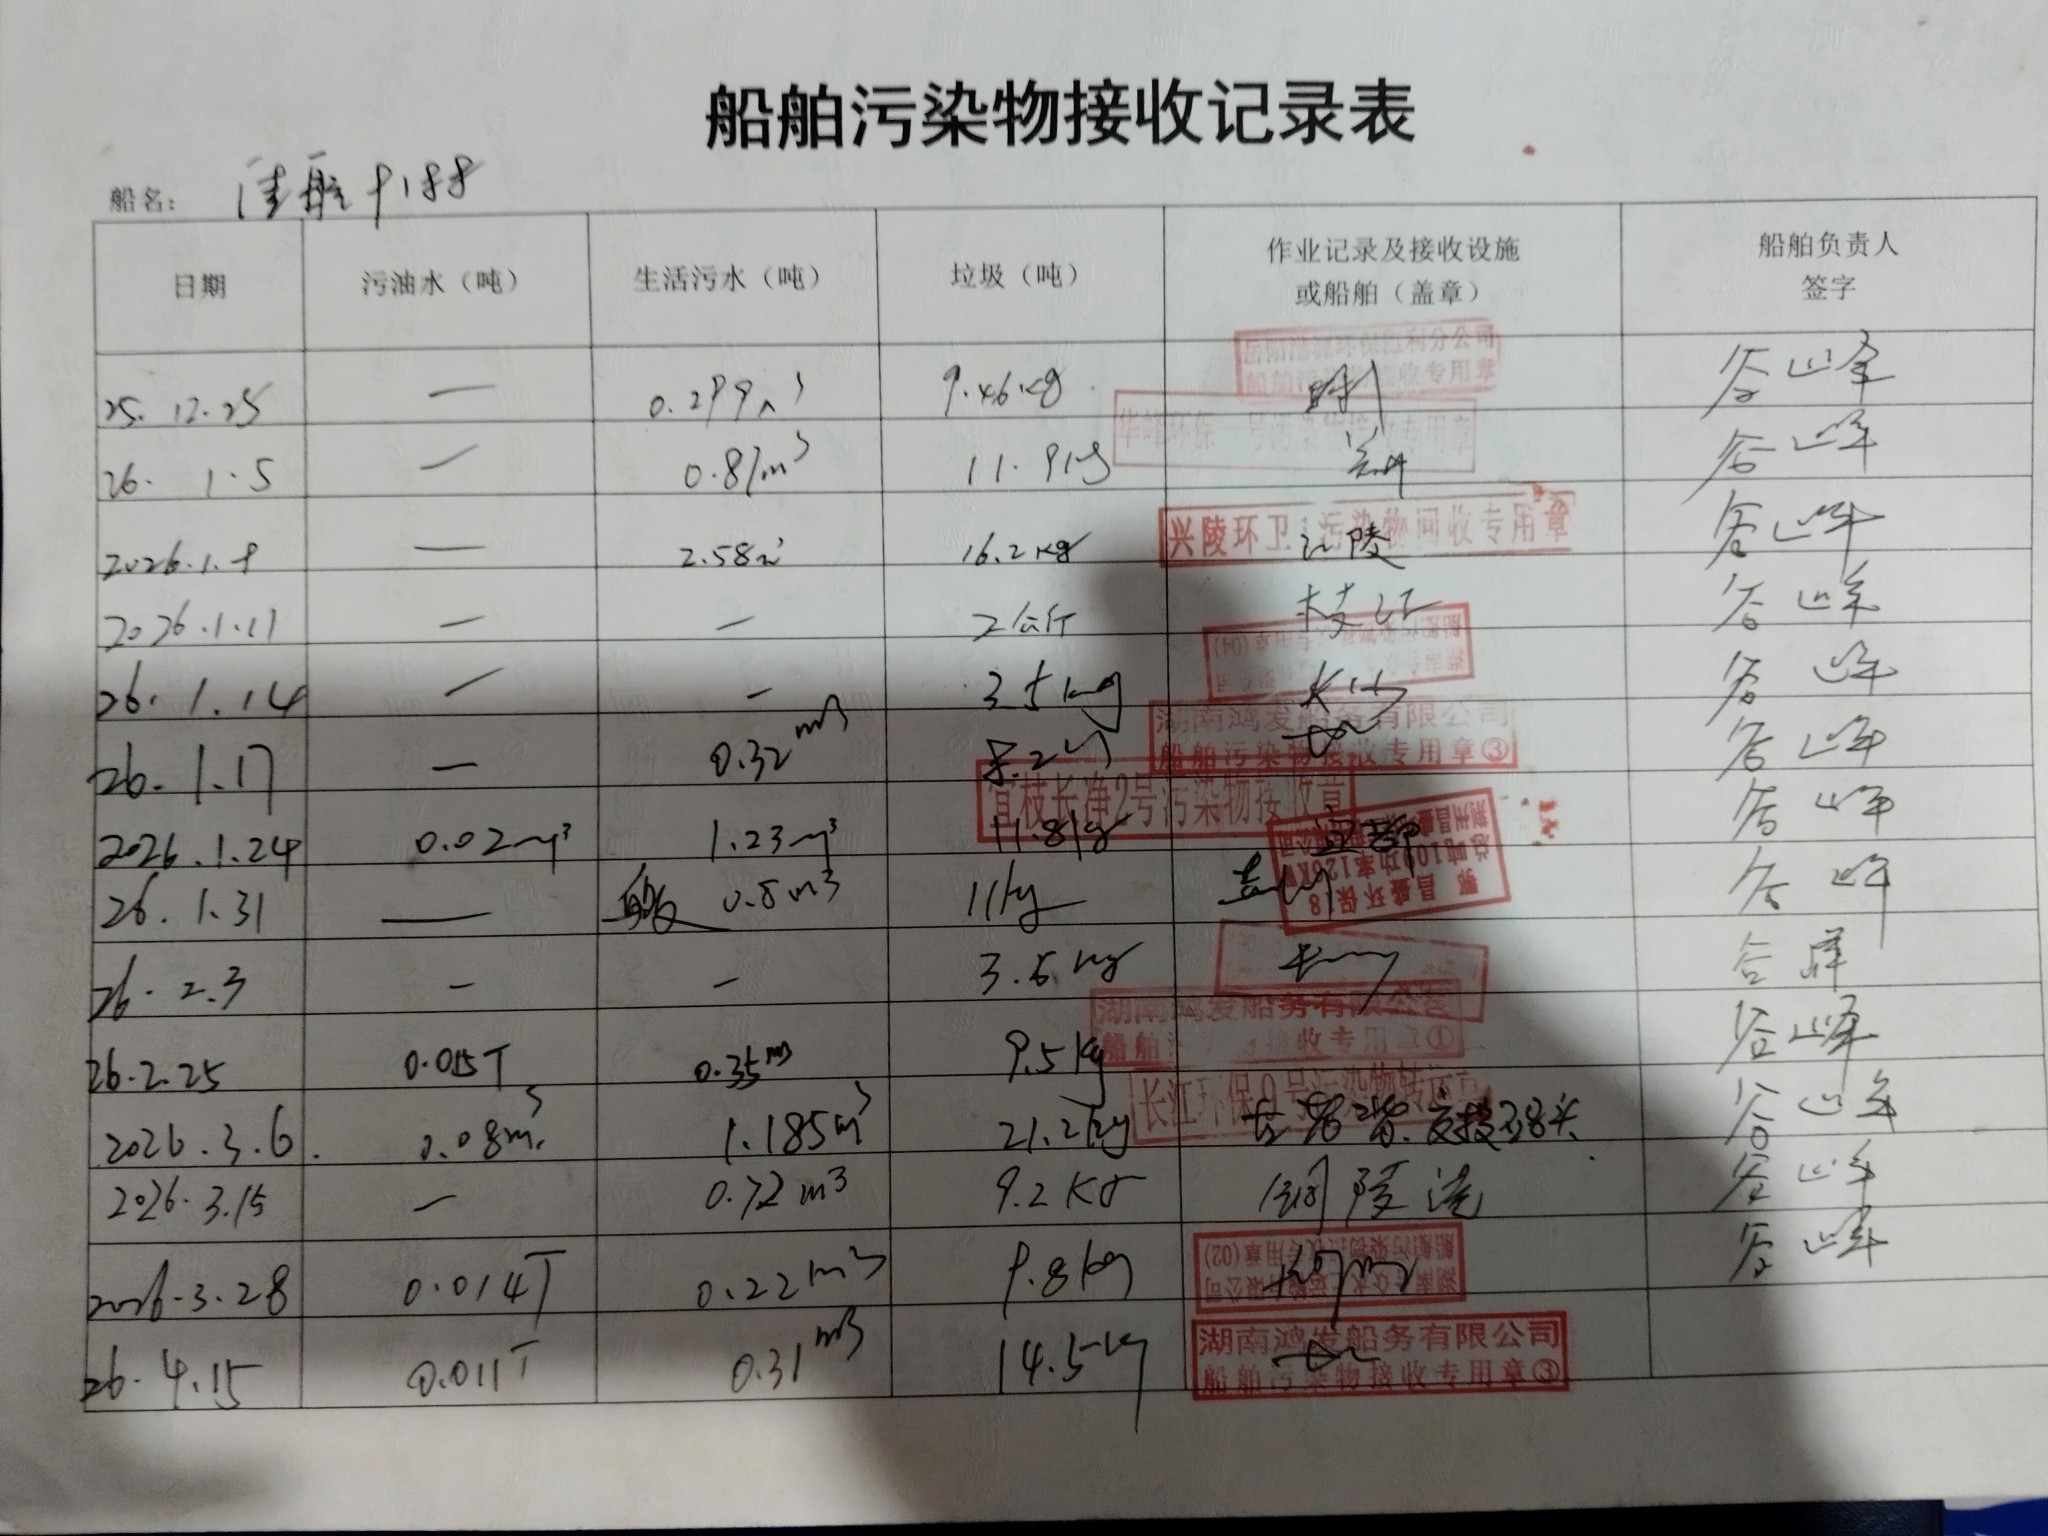 船舶污染物接收记录表
船名: 佳航9188
日期 污油水（吨） 生活污水（吨） 垃圾（吨） 作业记录及接收设施或船舶（盖章） 船舶负责人签字
25.12.25 — 0.299m³ 9.46kg 谷山峰
26.1.5 — 0.81m³ 11.9kg 华峰环保一号污染物接收专用章 谷山峰
2026.1.9 — 2.58m³ 16.2kg 江陵 兴陵环卫 污染物回收专用章 谷山峰
2026.1.11 — — 2公斤 枝江 谷山峰
26.1.14 — — 3.5kg 谷山峰
26.1.17 — 0.32m³ 8.2kg 湖南鸿发船务有限公司 船舶污染物接收专用章③ 谷山峰
2026.1.24 0.02m³ 1.23m³ 11.8kg 宜都 宜枝长净2号污染物接收章 谷山峰
26.1.31 — 0.8m³ 11kg 鄂昌盛环保18 谷山峰
26.2.3 — — 3.5kg 谷峰
26.2.25 0.015T 0.35m³ 9.5kg 湖南鸿发船务有限公司 船舶 接收专用章① 谷山峰
2026.3.6. 0.08m³ 1.185m³ 21.2kg 长江环保 号污染物转运章 谷山峰
2026.3.15 — 0.72m³ 9.2Kg 铜陵港 谷山峰
2026.3.28 0.014T 0.22m³ 9.8kg 谷山峰
26.4.15 0.011T 0.31m³ 14.5kg 湖南鸿发船务有限公司 船舶污染物接收专用章③